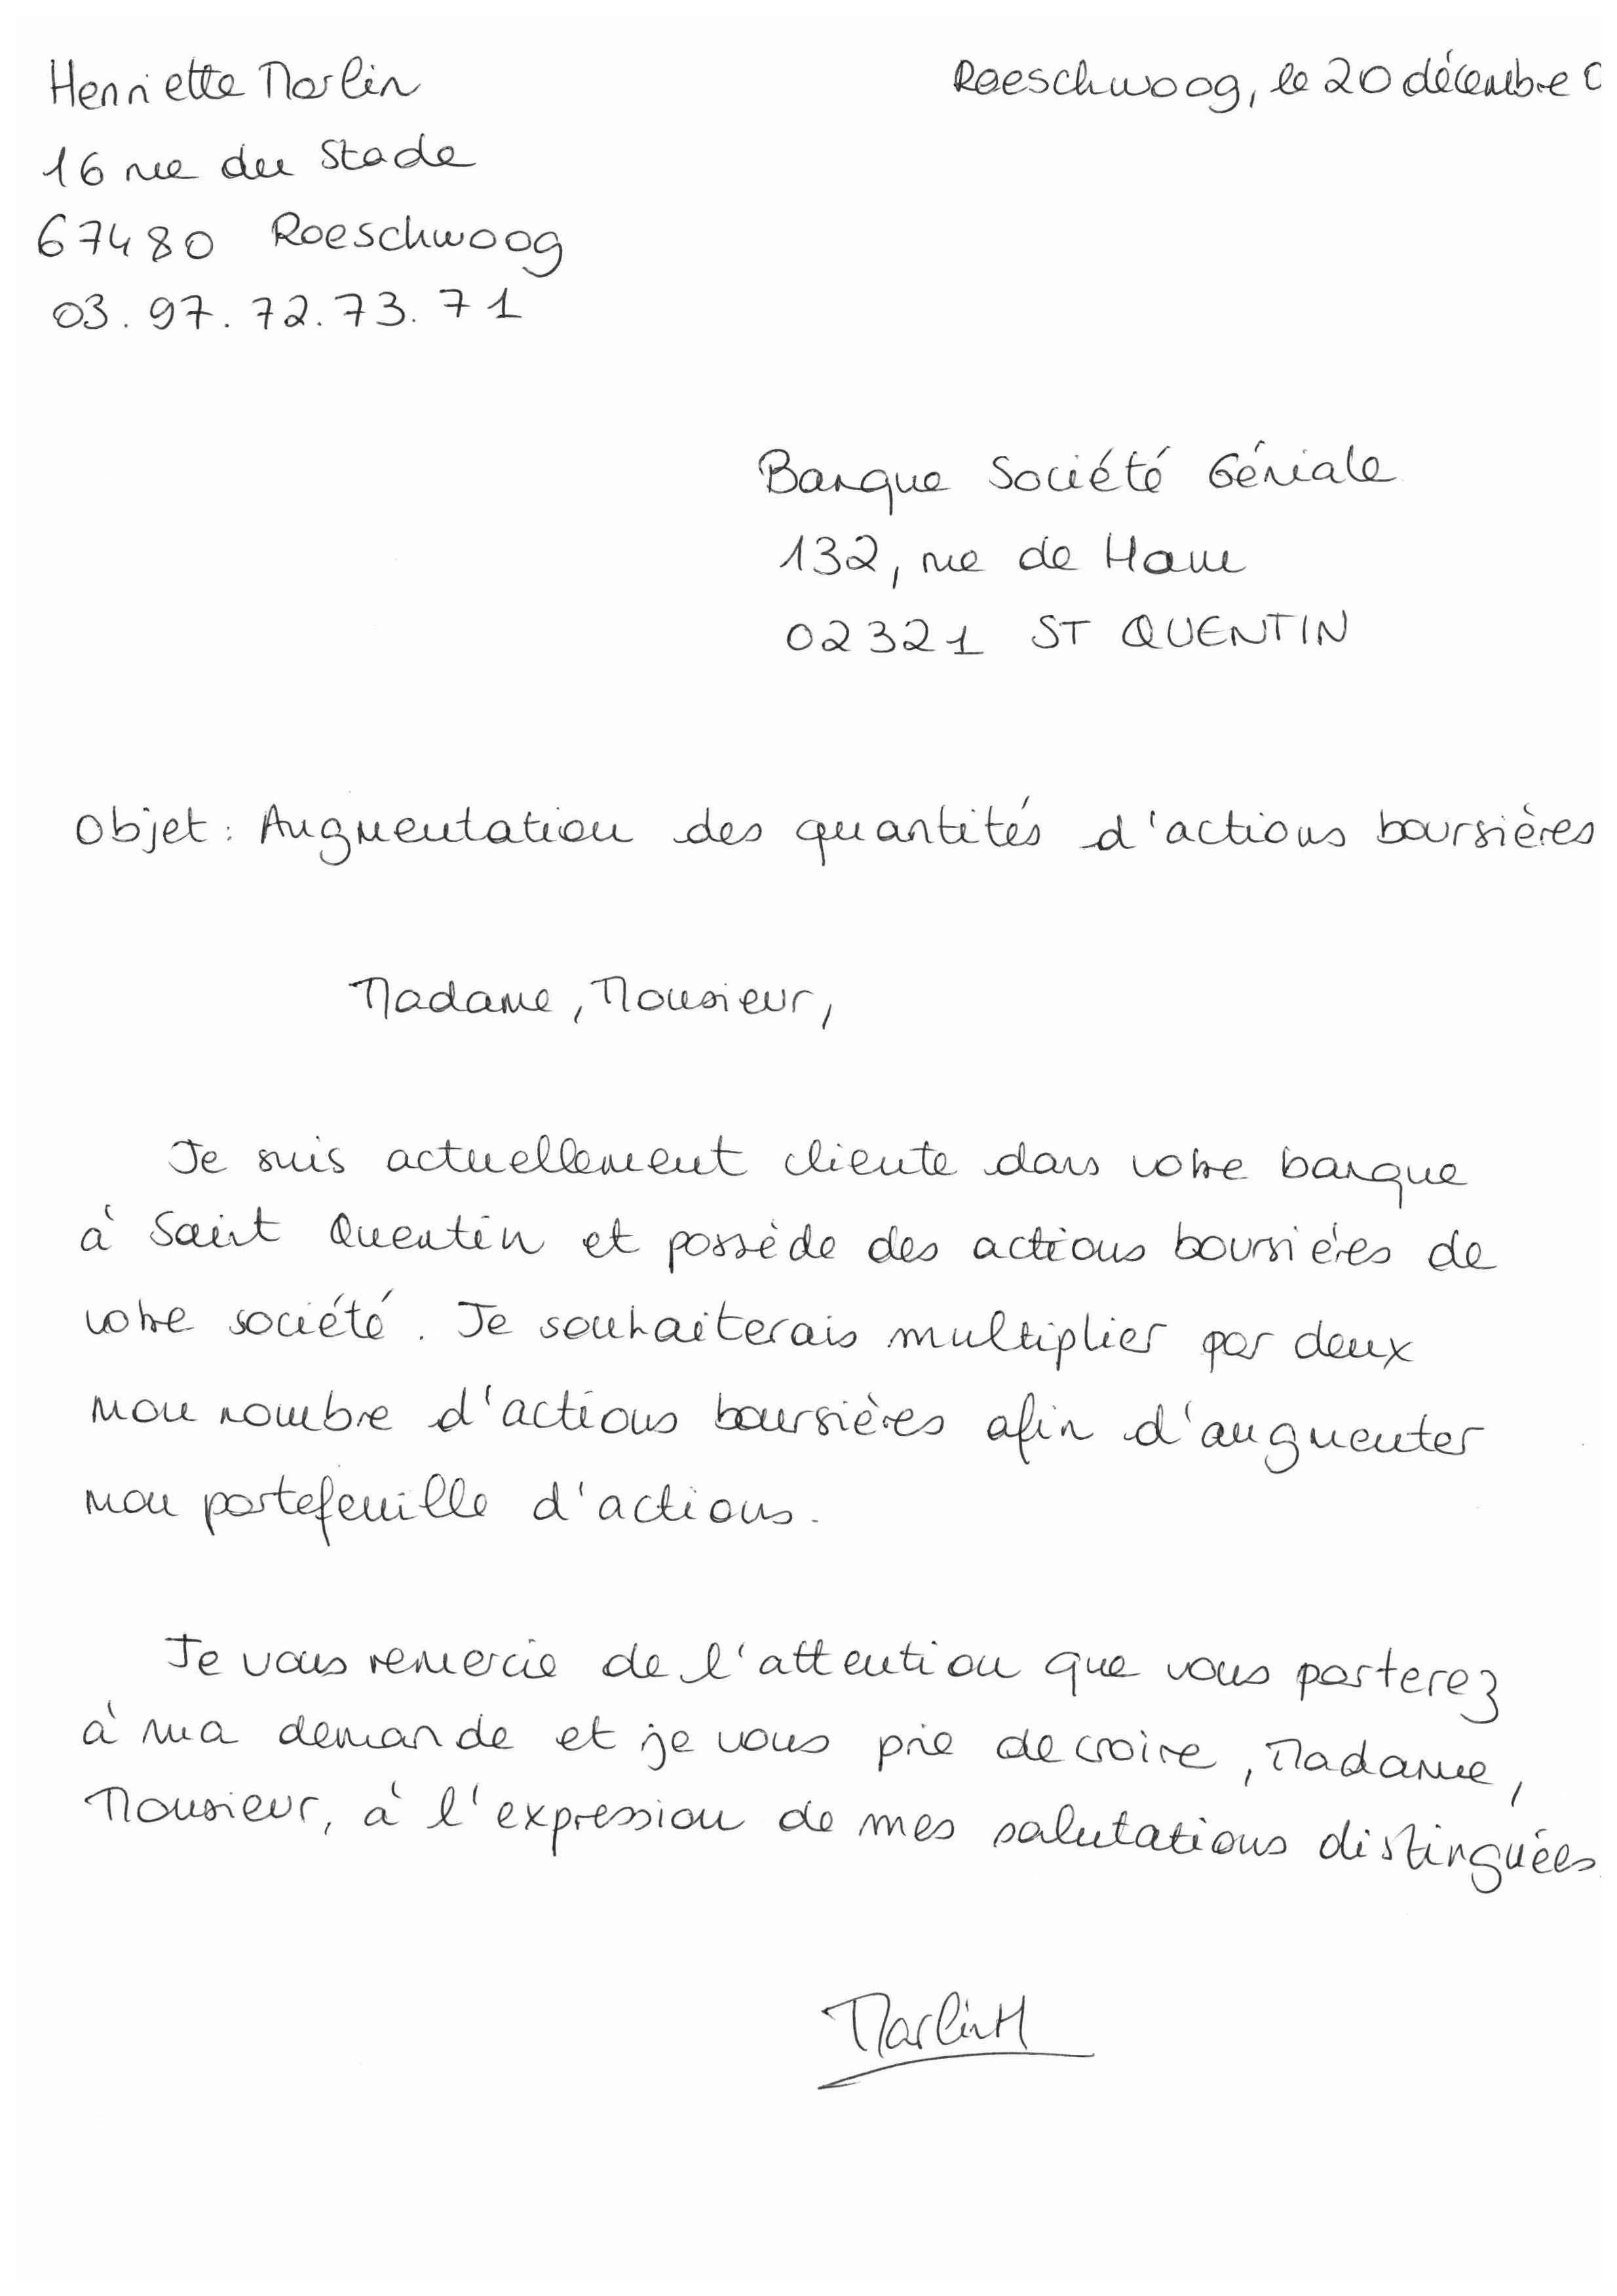 Henriette Marlin
Roeschwoog, le 20 décembre
16 rue du Stade
67480 Roeschwoog
03.97.72.73.71
Banque Société Géniale
132, rue de Ham
02321 ST QUENTIN
Objet : Augmentation des quantités d'actions boursières
Madame, Monsieur,
Je suis actuellement cliente dans votre banque
à Saint Quentin et possède des actions boursières de
votre société. Je souhaiterais multiplier par deux
mon nombre d'actions boursières afin d'augmenter
mon portefeuille d'actions.
Je vous remercie de l'attention que vous porterez
à ma demande et je vous prie de croire, Madame,
Monsieur, à l'expression de mes salutations distinguées.
Marlin H